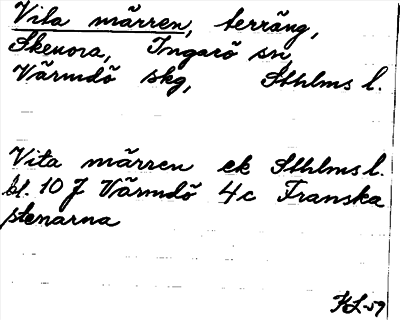 Vita märren, terräng,
Skenora, Ingarö sn,
Värmdö skg, Sthlms l.
Vita märren ek Sthlms l.
bl. 10 J Värmdö 4c Franska
stenarna
KL-59